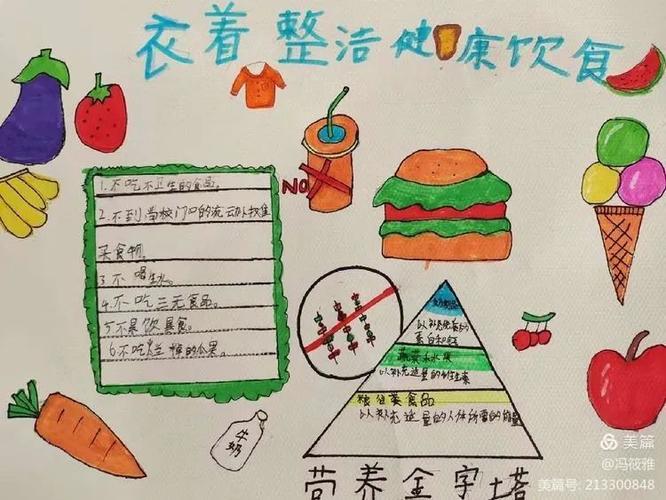 衣着整洁健康饮食
1.不吃不卫生的食品。
NO
2.不到学校门口的流动小摊
买食物。
3 不喝生水。
4.不吃三无食品。
5不暴饮暴食。
6不吃烂掉的瓜果。
奶制品
以补充
蛋白和钙
蔬菜和水果
以补充适量的维生素
谷类食品
以补充适量的人体所需的能量
牛奶
营养金字塔
美篇
@冯筱雅
美篇号: 213300848